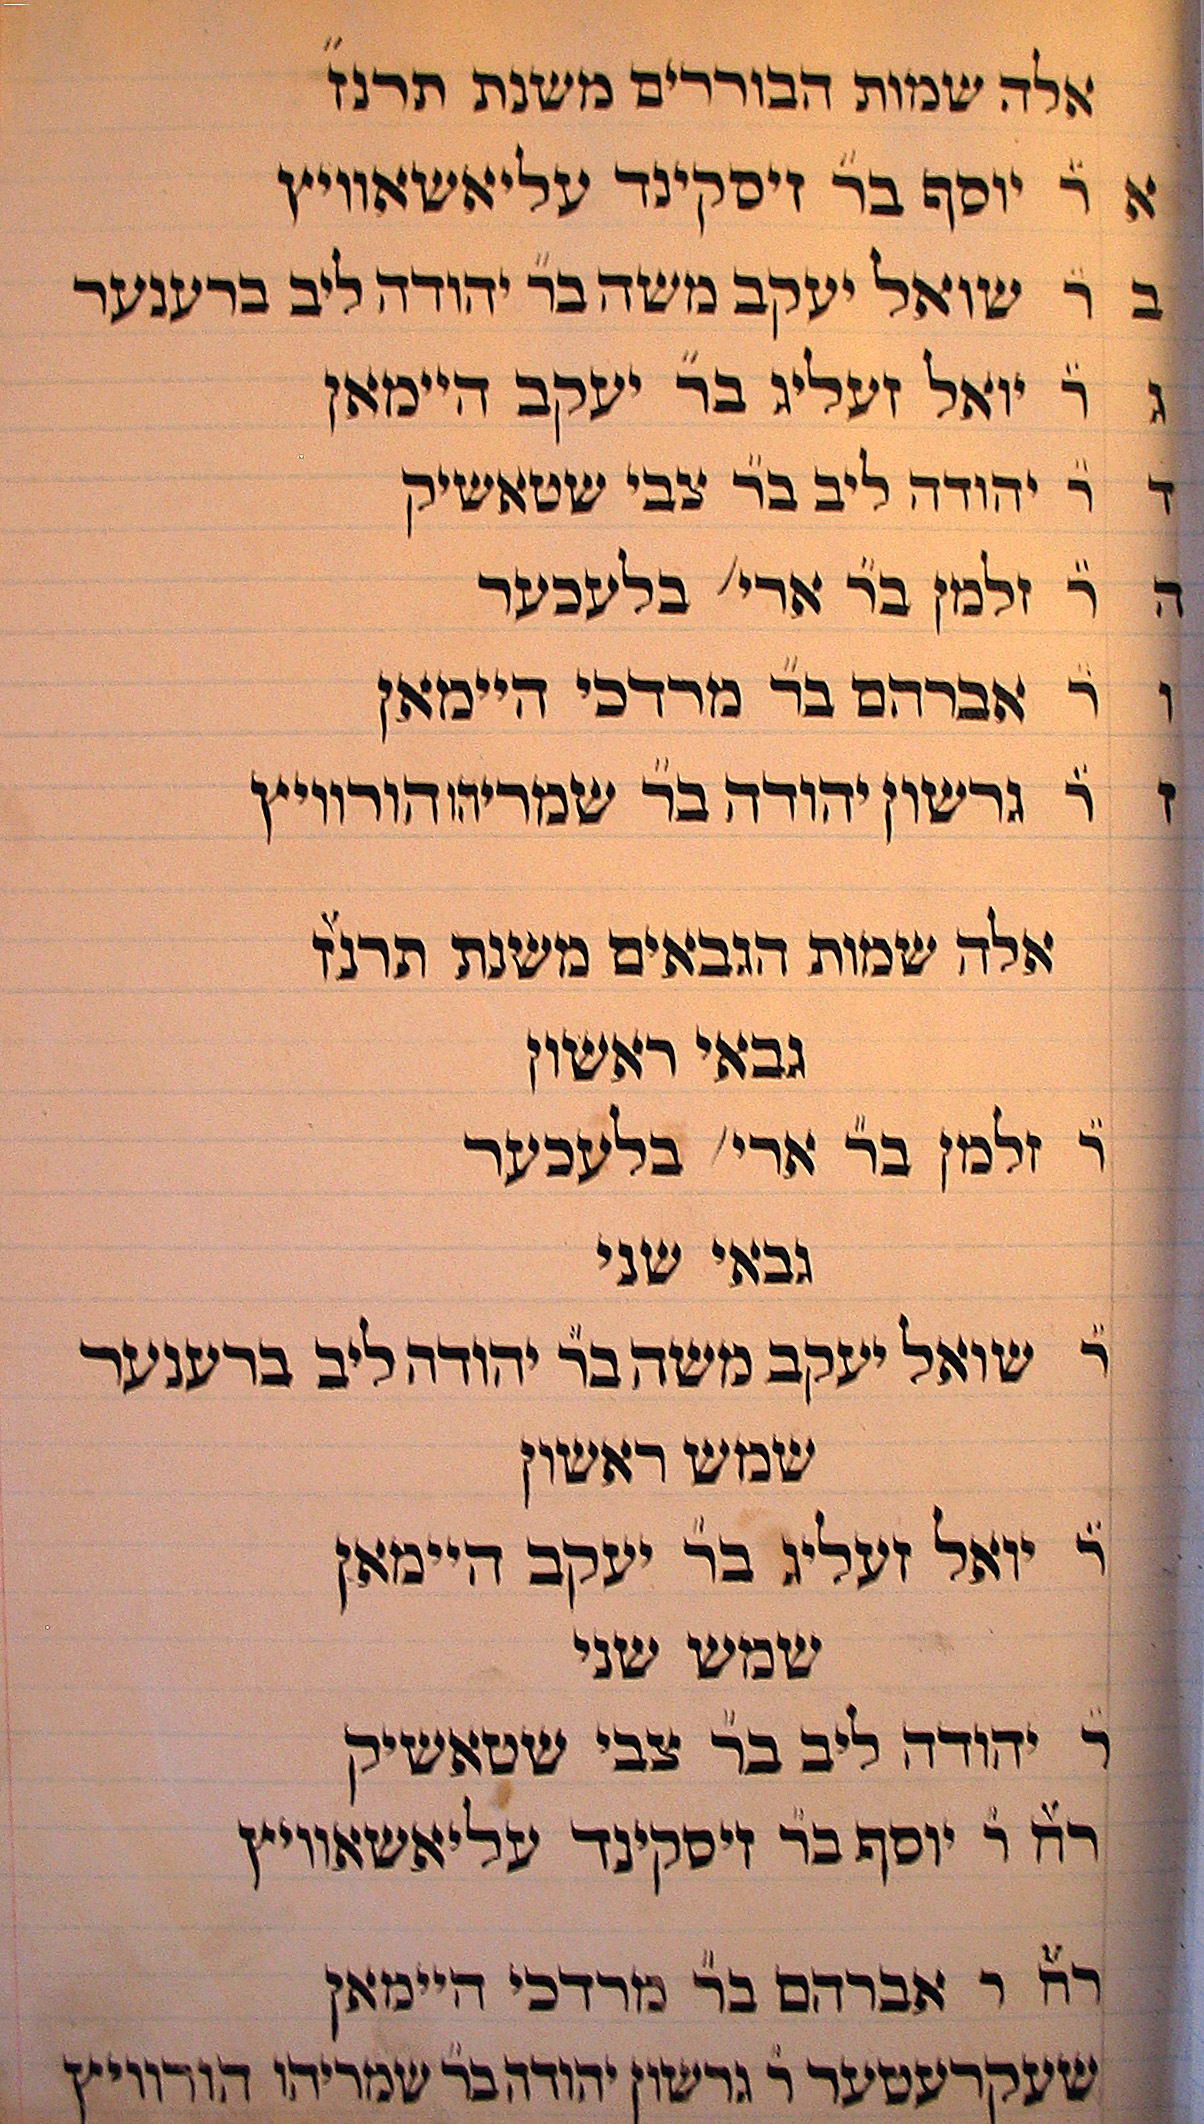 אלה שמות הבוררים משנת תרנ״ז
א ר״ יוסף בר״ זיסקינד עליאשאוויץ
ב ר״ שואל יעקב משה בר״ יהודה ליב ברענער
ג ר״ יואל זעליג בר״ יעקב היימאן
ד ר״ יהודה ליב בר״ צבי שטאשיק
ה ר״ זלמן בר״ ארי׳ בלעכער
ו ר״ אברהם בר״ מרדכי היימאן
ז ר״ גרשון יהודה בר״ שמריהו הורוויץ
אלה שמות הגבאים משנת תרנ״ז
גבאי ראשון
ר״ זלמן בר״ ארי׳ בלעכער
גבאי שני
ר״ שואל יעקב משה בר״ יהודה ליב ברענער
שמש ראשון
ר״ יואל זעליג בר״ יעקב היימאן
שמש שני
ר״ יהודה ליב בר״ צבי שטאשיק
ר״ח ר״ יוסף בר״ זיסקינד עליאשאוויץ
ר״ח ר אברהם בר״ מרדכי היימאן
שעקרעטער ר״ גרשון יהודה בר״ שמריהו הורוויץ